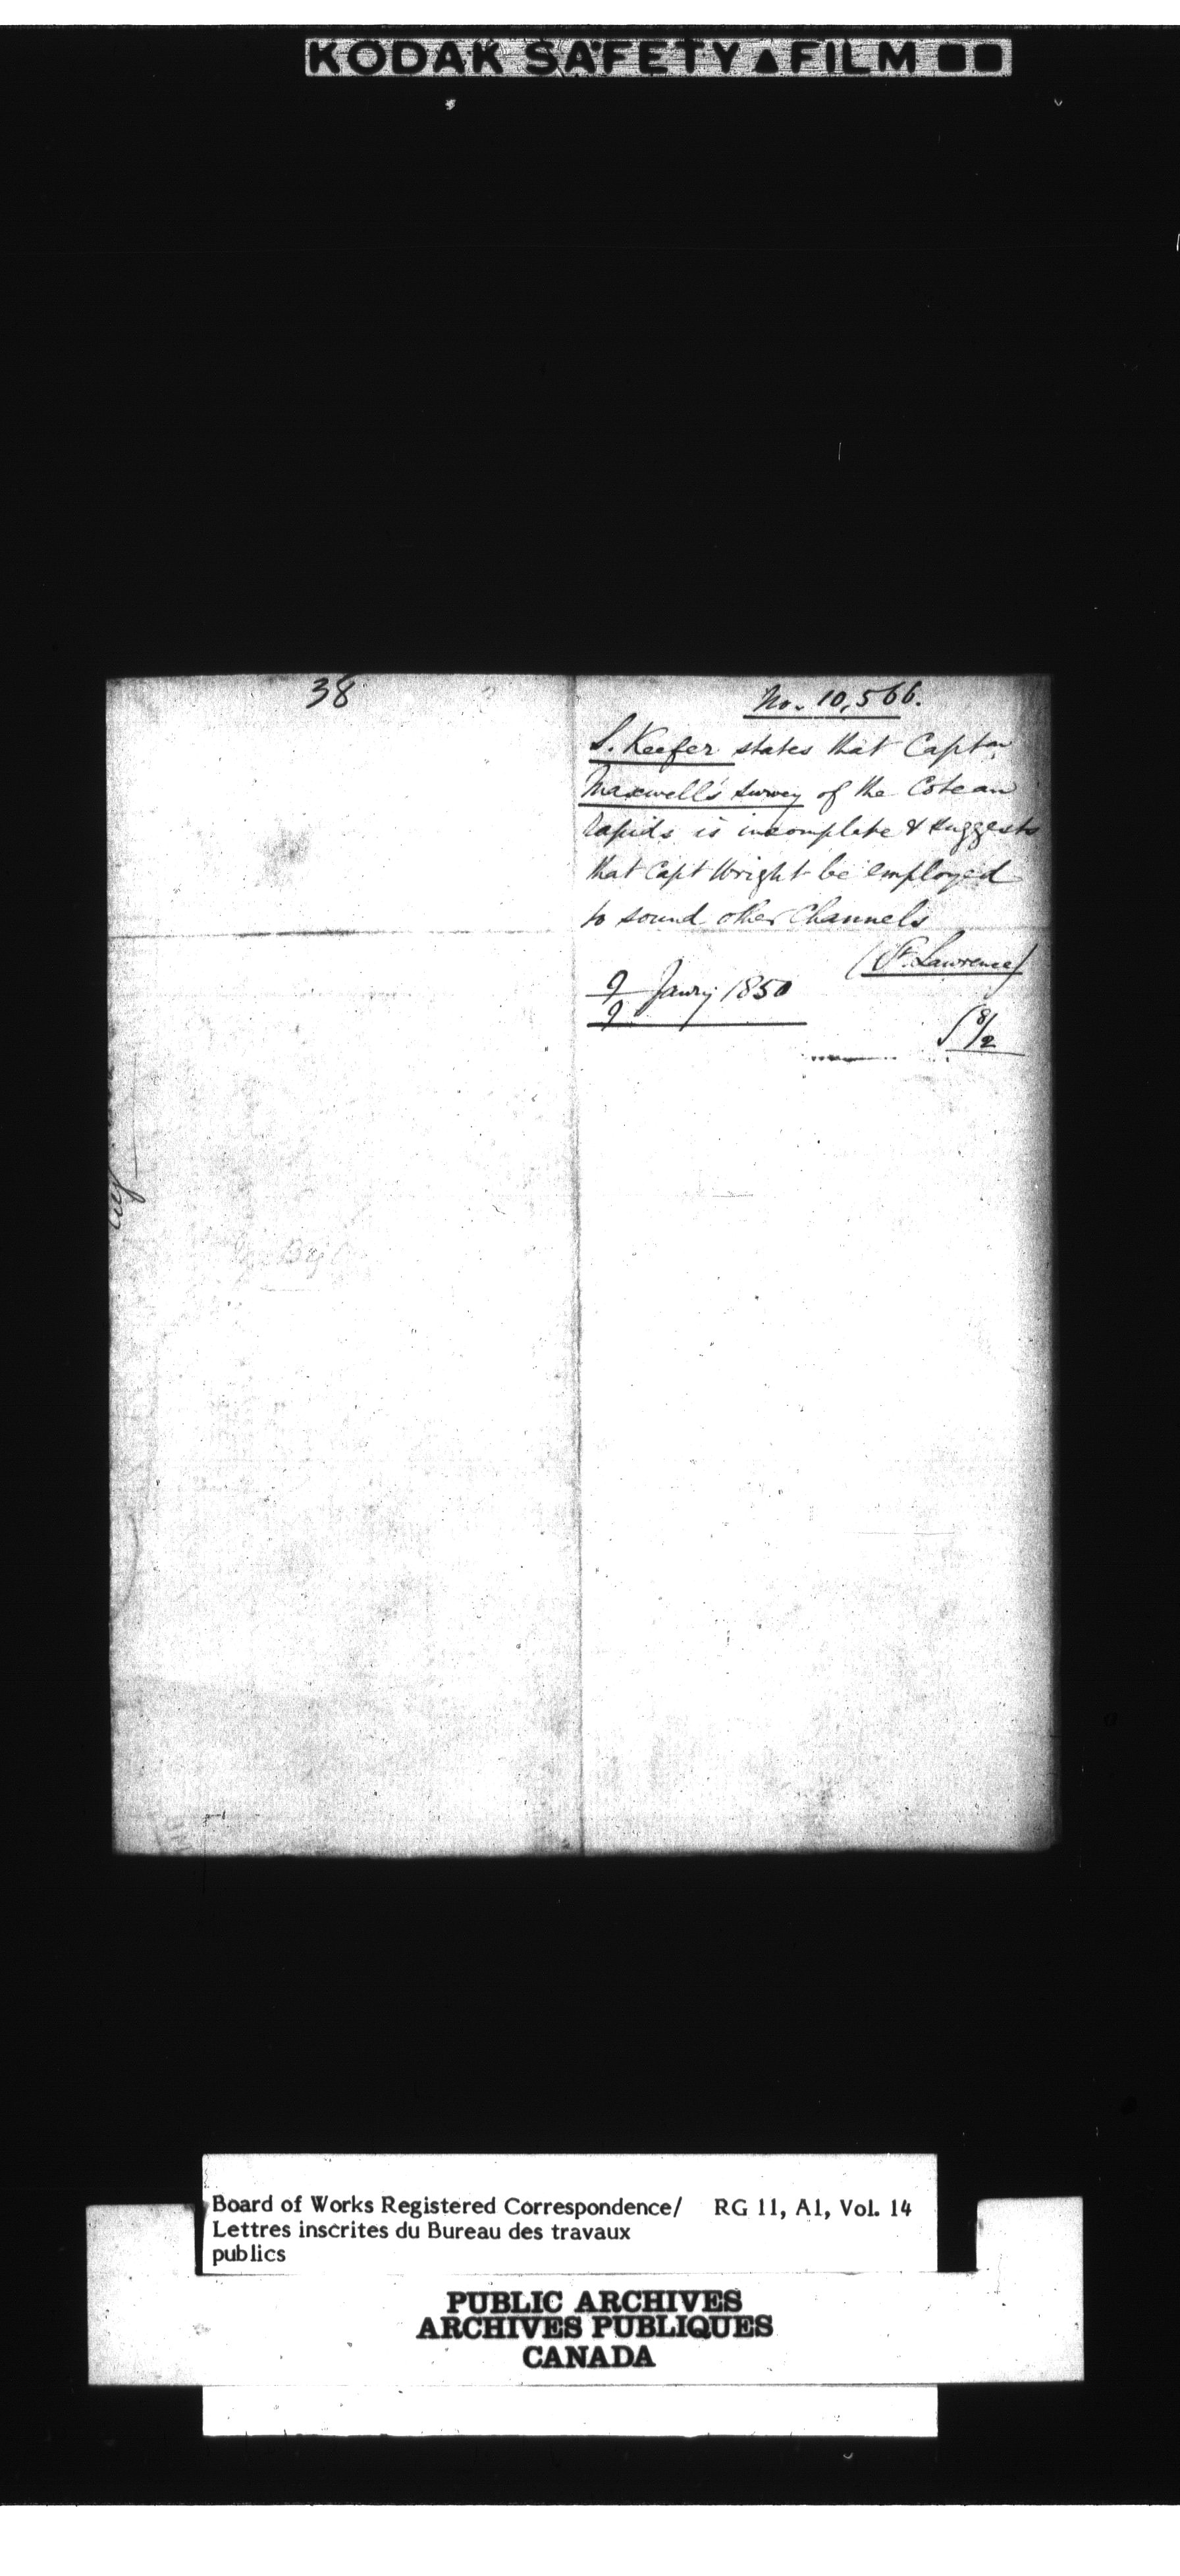 KODAK SAFETY ▲ FILM ■■
38
No. 10,566.
S. Keefer states that Captn
Maxwell's survey of the Coteau
rapids is incomplete & suggests
that Capt Wright be employed
to sound other Channels
(St. Lawrence)
9 Janry 1850
9
8/2
Board of Works Registered Correspondence/ RG 11, A1, Vol. 14
Lettres inscrites du Bureau des travaux
publics
PUBLIC ARCHIVES
ARCHIVES PUBLIQUES
CANADA